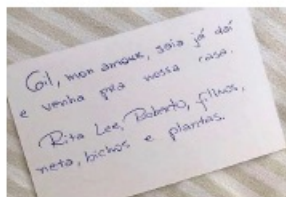 Gil, mon amour, saia já daí
e venha pra nossa casa.
Rita Lee, Roberto, filhos,
neta, bichos e plantas.